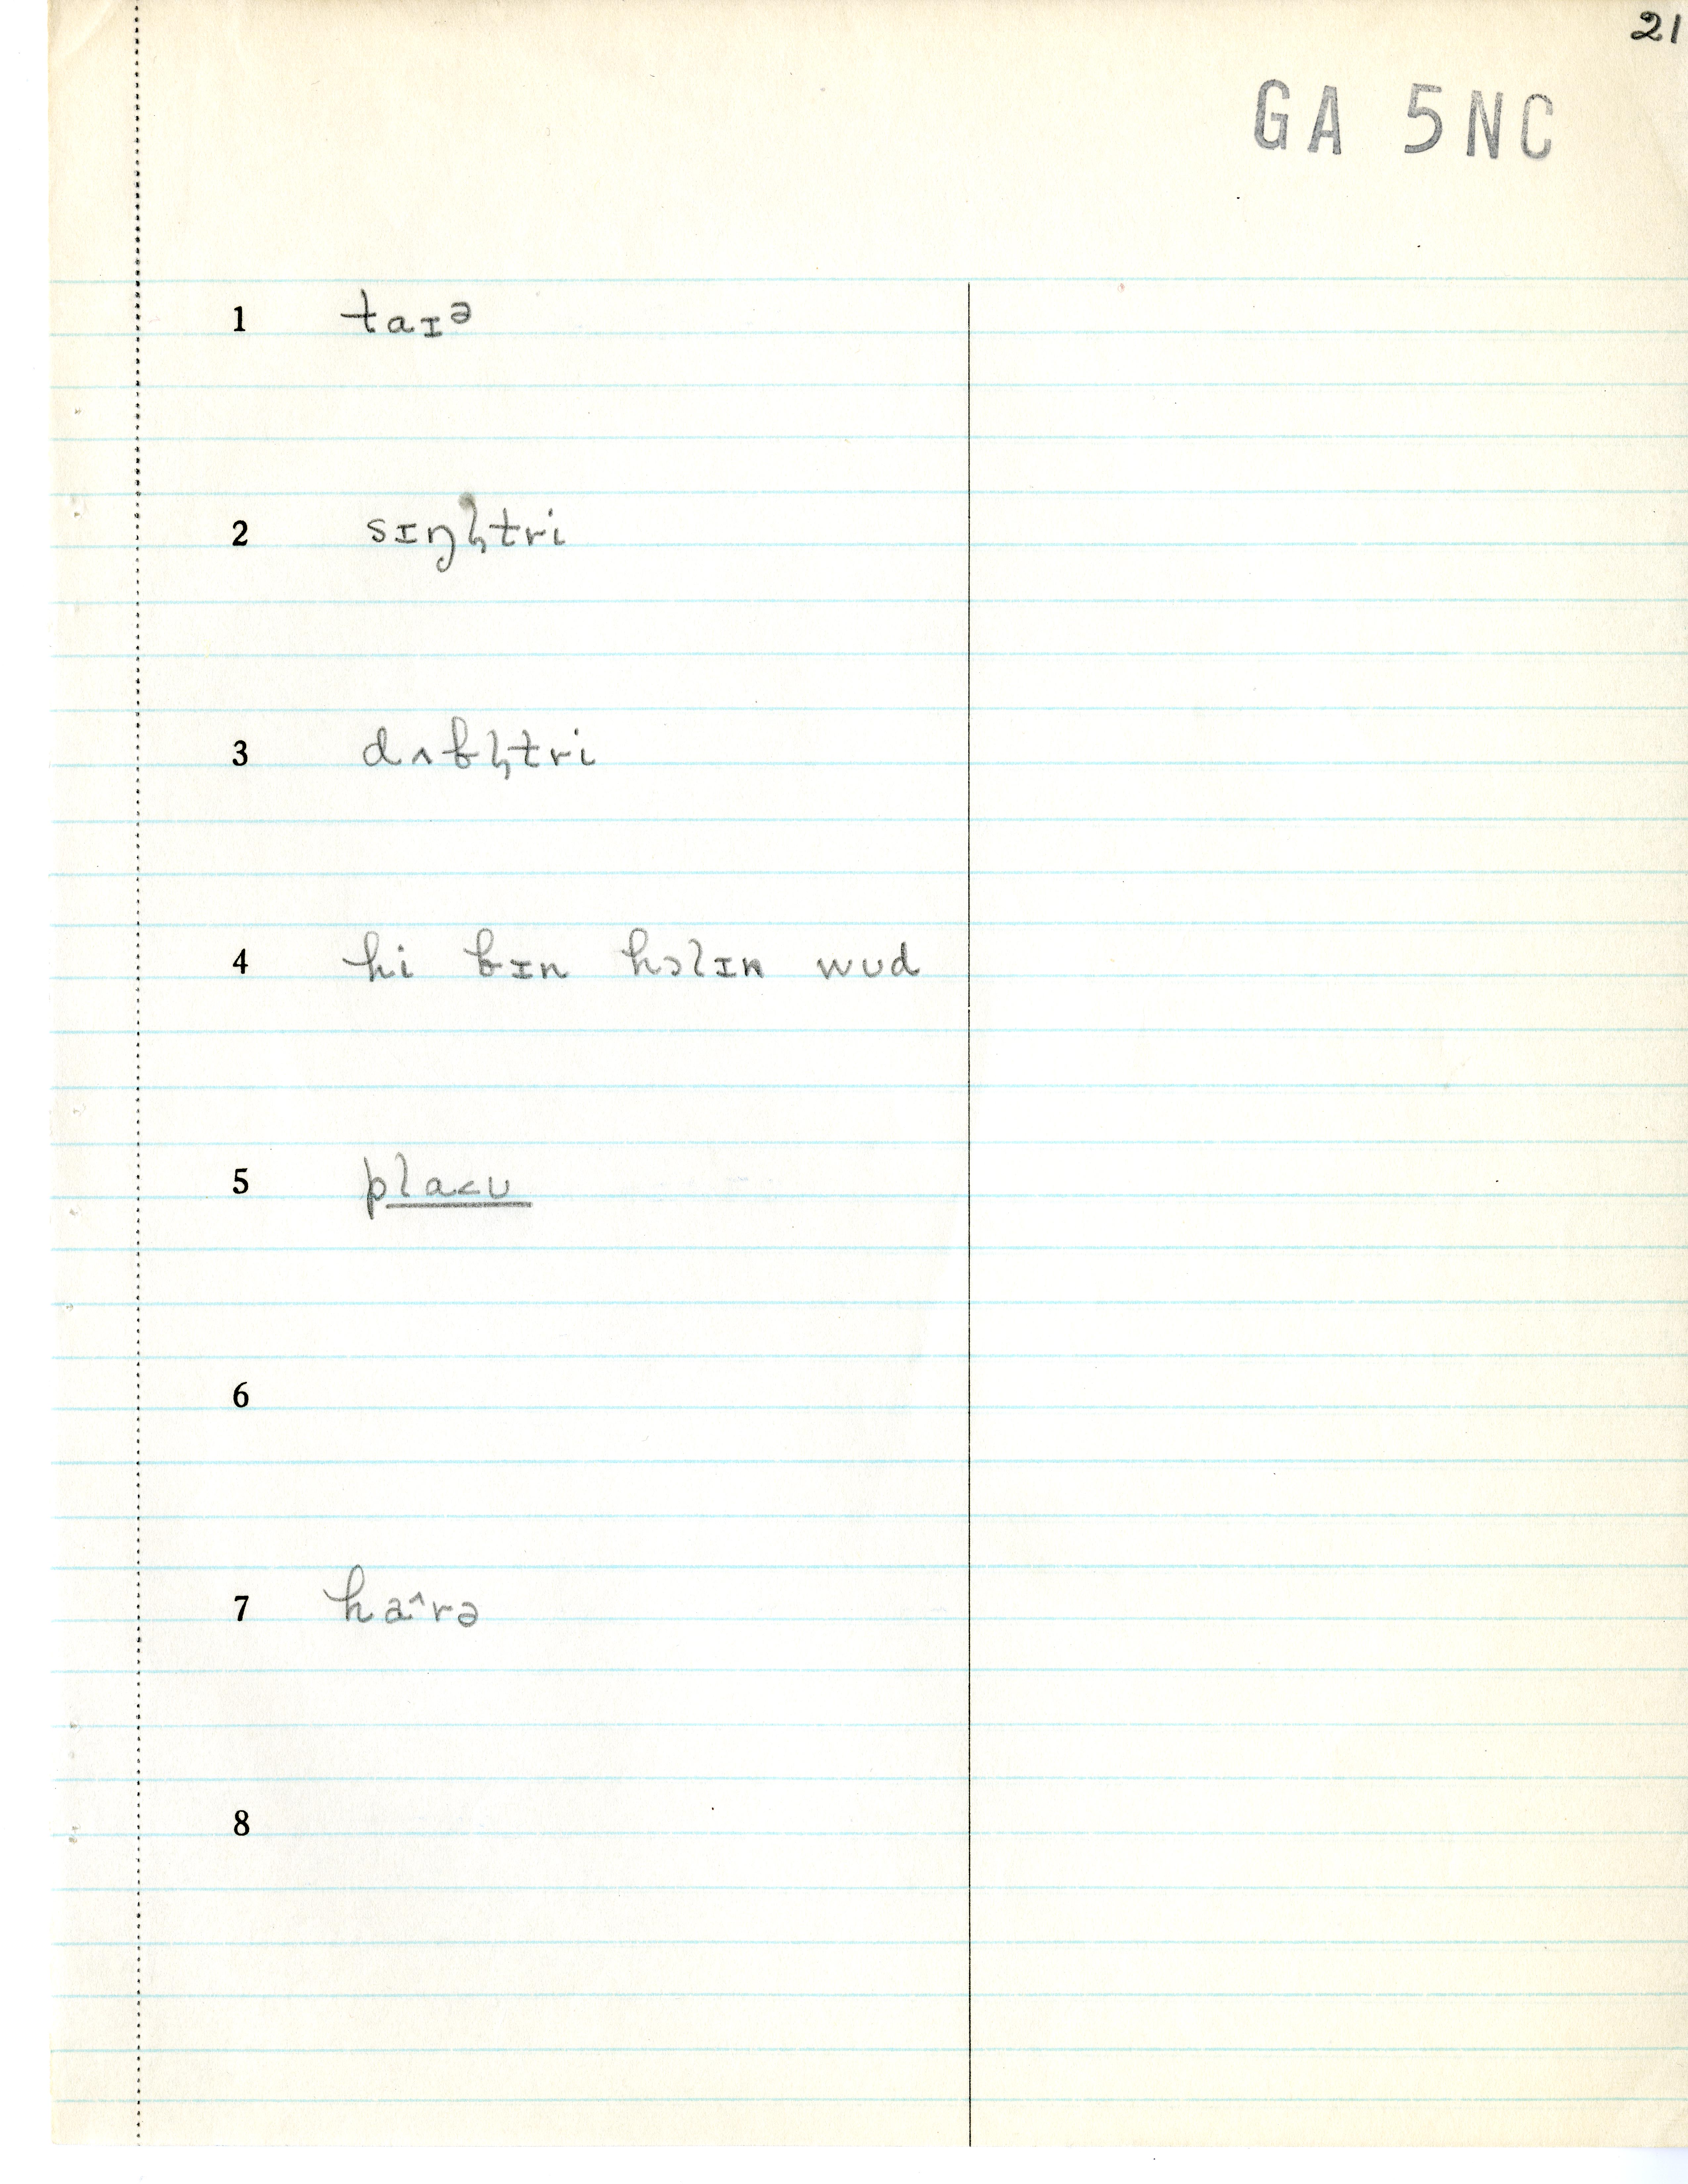 21
GA 5NC
1 taɪᵊ
2 sɪŋl̩tri
3 dʌbl̩tri
4 hi bɪn hɔlɪn wud
5 pla˂u
6
7 ha˄rə
8